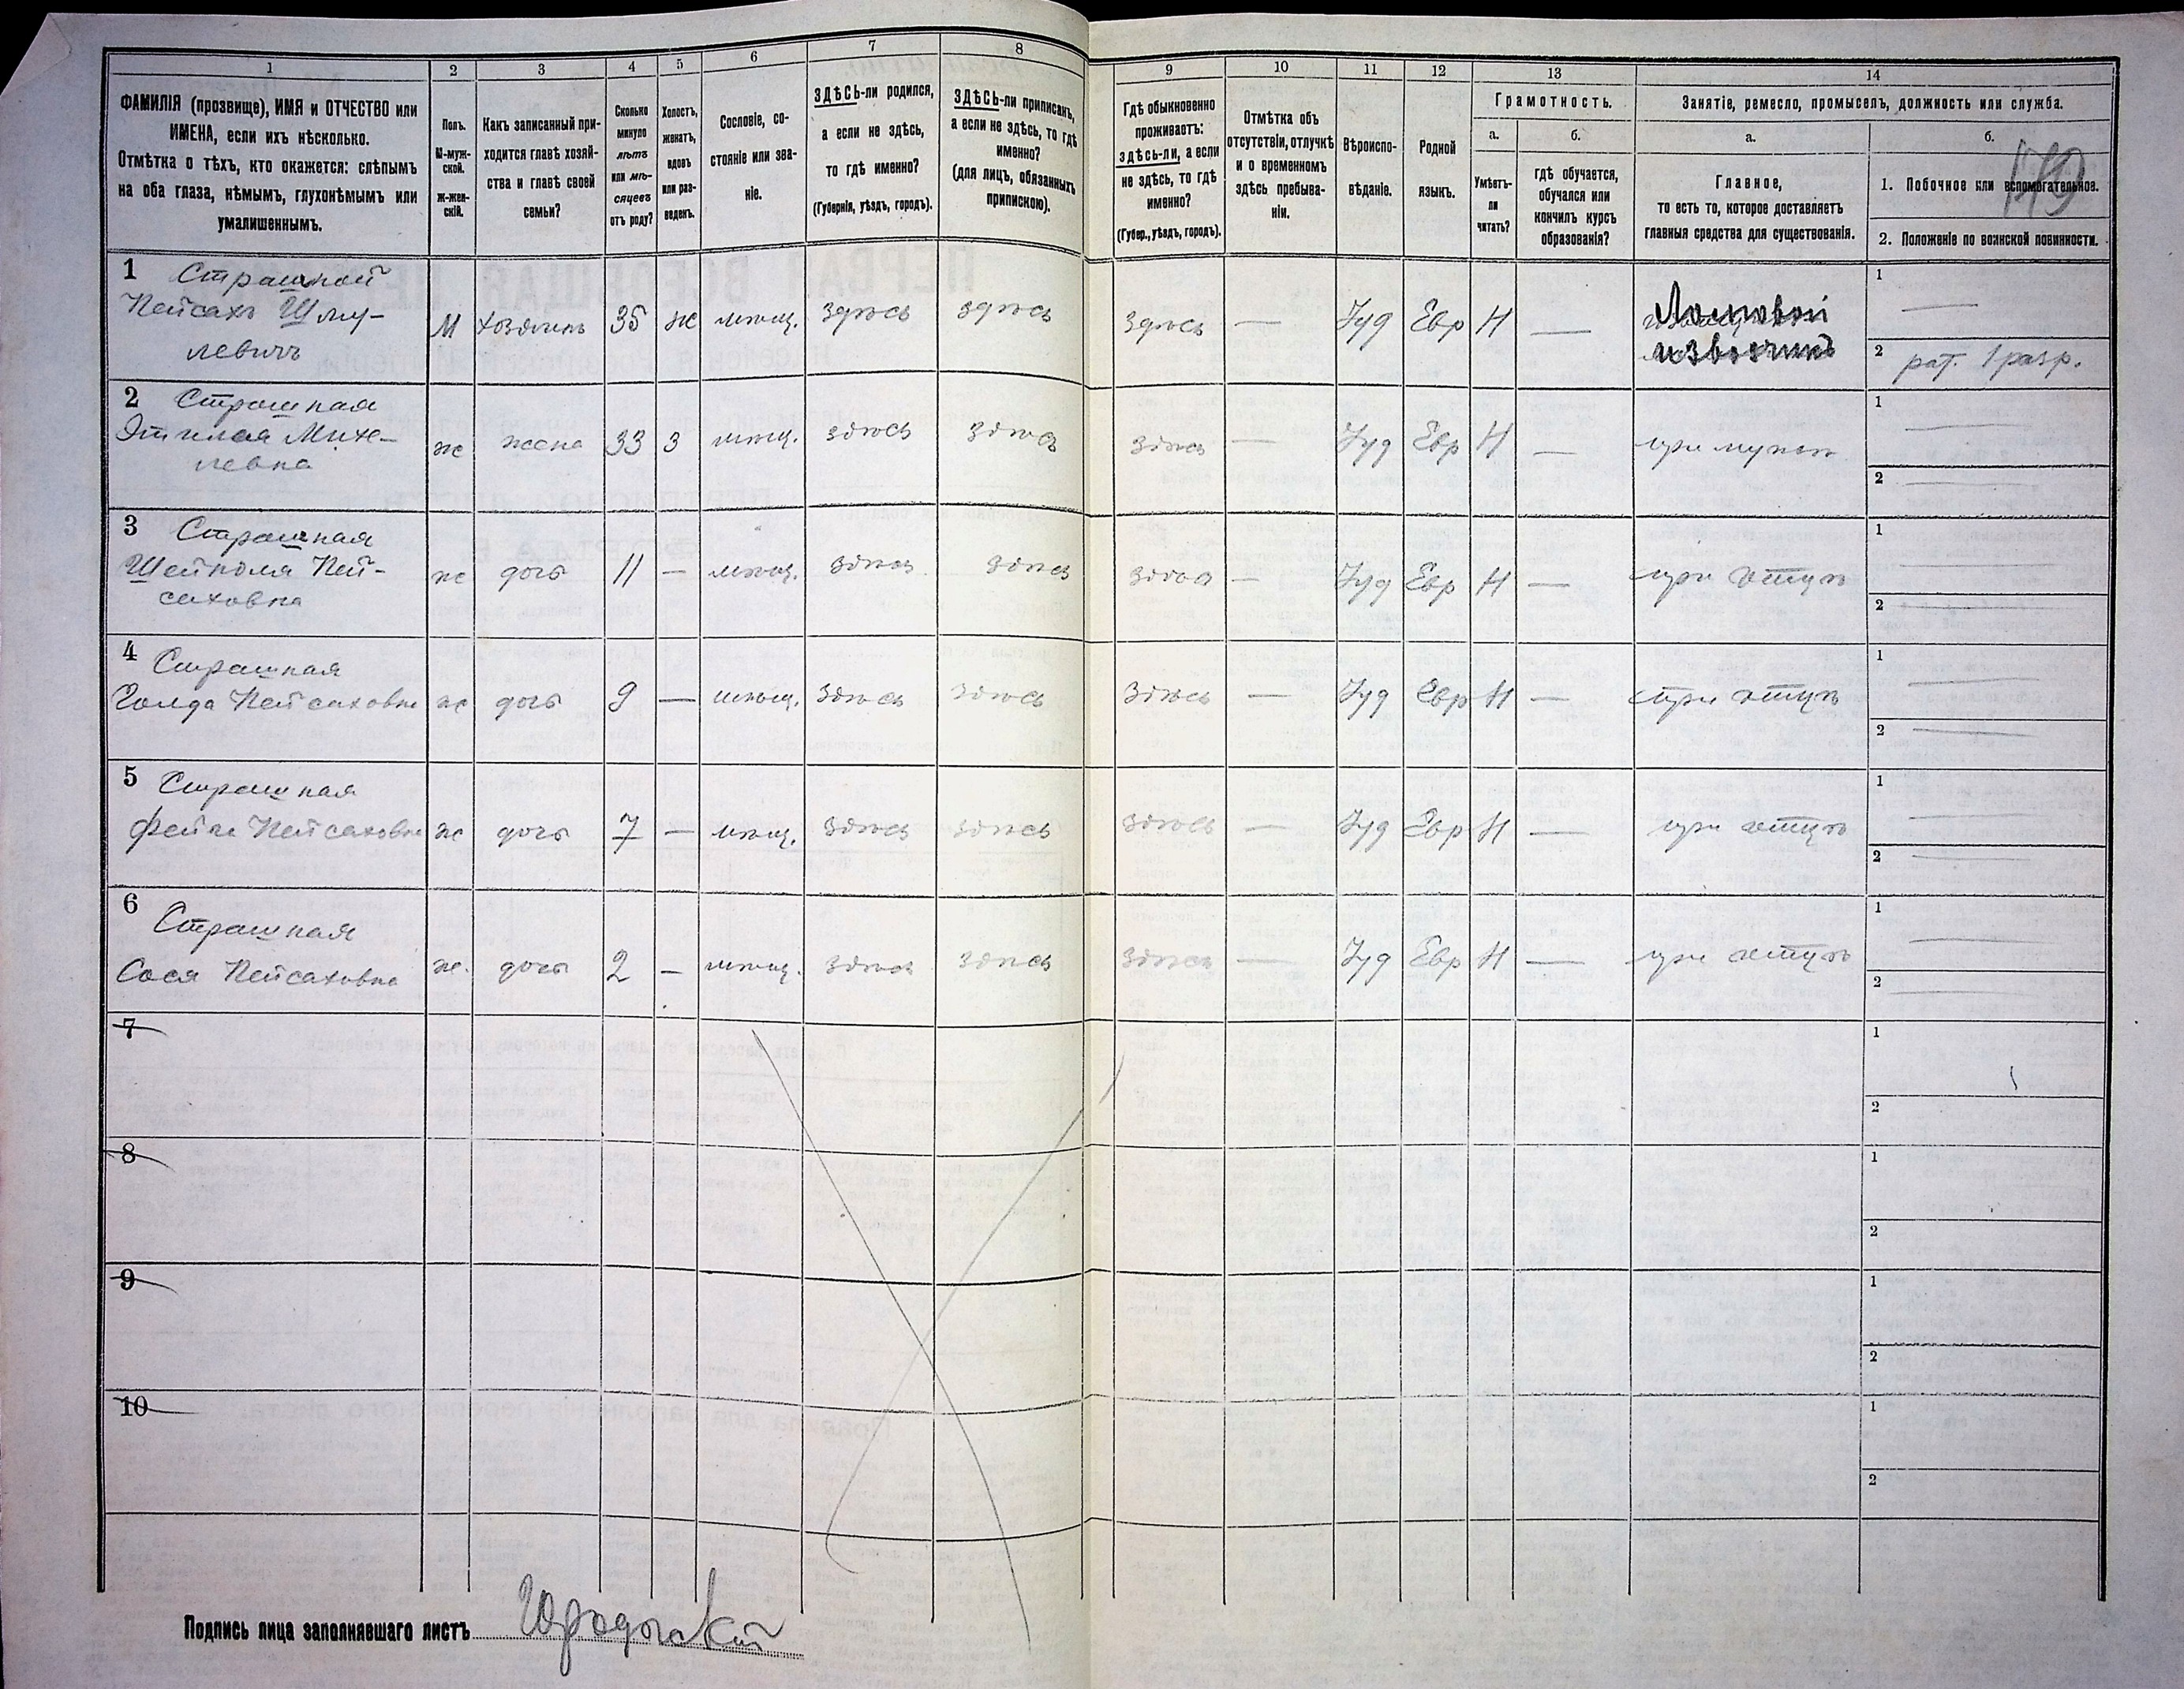 1 2 3 4 5 6 7 8 9 10 11 12 13 14
ФАМИЛІЯ (прозвище), ИМЯ и ОТЧЕСТВО или
ИМЕНА, если ихъ нѣсколько.
Отмѣтка о тѣхъ, кто окажется: слѣпымъ
на оба глаза, нѣмымъ, глухонѣмымъ или
умалишеннымъ.
Полъ.
М-муж-
ской.
ж-жен-
скій.
Какъ записанный при-
ходится главѣ хозяй-
ства и главѣ своей
семьи?
Сколько
минуло
лѣтъ
или мѣ-
сяцевъ
отъ роду?
Холостъ,
женатъ,
вдовъ
или раз-
веденъ.
Сословіе, со-
стояніе или зва-
ніе.
ЗДѢСЬ-ли родился,
а если не здѣсь,
то гдѣ именно?
(Губернія, уѣздъ, городъ).
ЗДѢСЬ-ли приписанъ,
а если не здѣсь, то гдѣ
именно?
(для лицъ, обязанныхъ
припискою).
Гдѣ обыкновенно
проживаетъ:
здѣсь-ли, а если
не здѣсь, то гдѣ
именно?
(Губер., уѣздъ, городъ).
Отмѣтка объ
отсутствіи, отлучкѣ
и о временномъ
здѣсь пребыва-
ніи.
Вѣроиспо-
вѣданіе.
Родной
языкъ.
Грамотность.
а.
Умѣетъ-
ли
читать?
б.
гдѣ обучается,
обучался или
кончилъ курсъ
образованія?
Занятіе, ремесло, промыселъ, должность или служба.
а.
Главное,
то есть то, которое доставляетъ
главныя средства для существованія.
б.
1. Побочное или вспомогательное.
2. Положеніе по воинской повинности.
179
1 Страшной
Пейсахъ Шму-
левичъ
М хозяинъ 35 ж мѣщ. здѣсь здѣсь здѣсь — Іуд Евр Н —
Ломовой
извозчикъ
1 —
2 рат. 1 разр.
2 Страшная
Михе-
левна
ж жена 33 З мѣщ. здѣсь здѣсь здѣсь — Іуд Евр Н — при мужѣ
1 —
2 —
3 Страшная
Шейндля Пей-
саховна
ж дочь 11 — мѣщ. здѣсь здѣсь здѣсь — Іуд Евр Н — при отцѣ
1 —
2 —
4 Страшная
Голда Пейсаховна ж дочь 9 — мѣщ. здѣсь здѣсь здѣсь — Іуд Евр Н — при отцѣ
1 —
2 —
5 Страшная
Фейга Пейсаховна ж дочь 7 — мѣщ. здѣсь здѣсь здѣсь — Іуд Евр Н — при отцѣ
1 —
2 —
6 Страшная
Сося Пейсаховна ж. дочь 2 — мѣщ. здѣсь здѣсь здѣсь — Іуд Евр Н — при отцѣ
1 —
2 —
7
1
2
8
1
2
9
1
2
10
1
2
Подпись лица заполнявшаго листъ